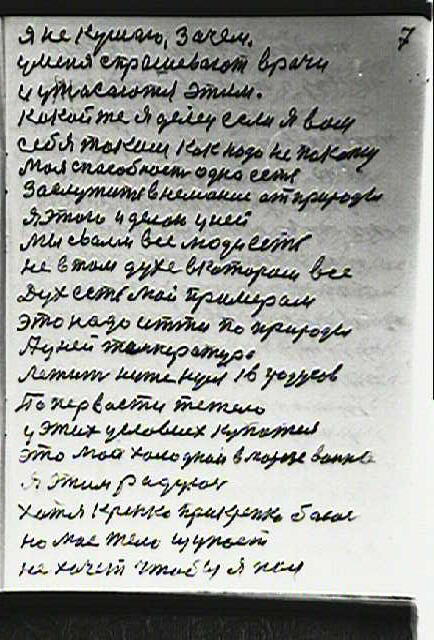 7
Я не кушаю, Зачем.
у меня спрашевают врачи
и ужасаются этим.
Какой же я делец если я вам
себя таким как надо не покажу
Моя способность одно есть
Заслужить внемание от природы
Я этого и делаю у ней
Мы свами все люди есть
не в том духе вкотором все
Дух есть мой примером
это надо итти по природы
А у ней температура
Лежит ниже нуля 16 градусов
По первасти тежело
у этих условиех купатся
это моя холодная в морозе ванна
Я этим радуюсь
Хотя крепко прикрепко болит
но мое тело щупает
не хочет чтобы я пел